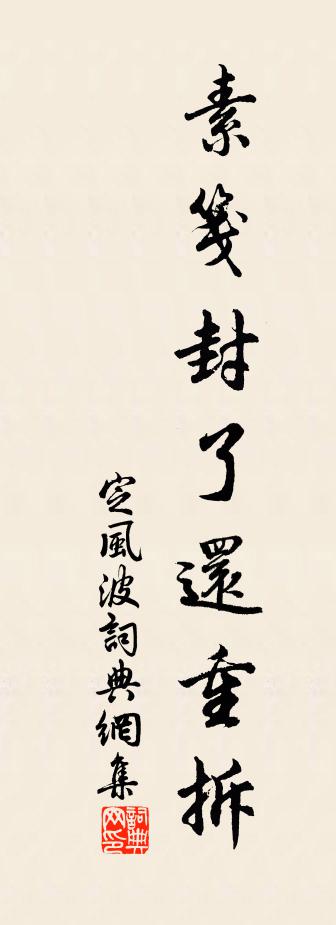 素箋封了還重拆
定風波詞典網集
詞典網印